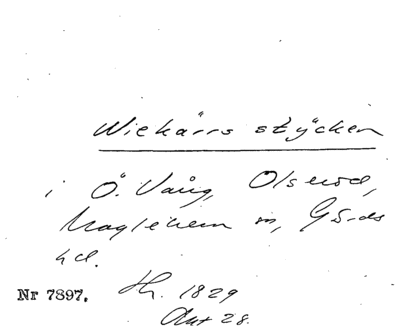 Wiekärrs stycken
i Ö. Vång, Olseröd,
Maglehem sn, Gärds
hd.
Nr 7897. Hr. 1829
Akt 28.